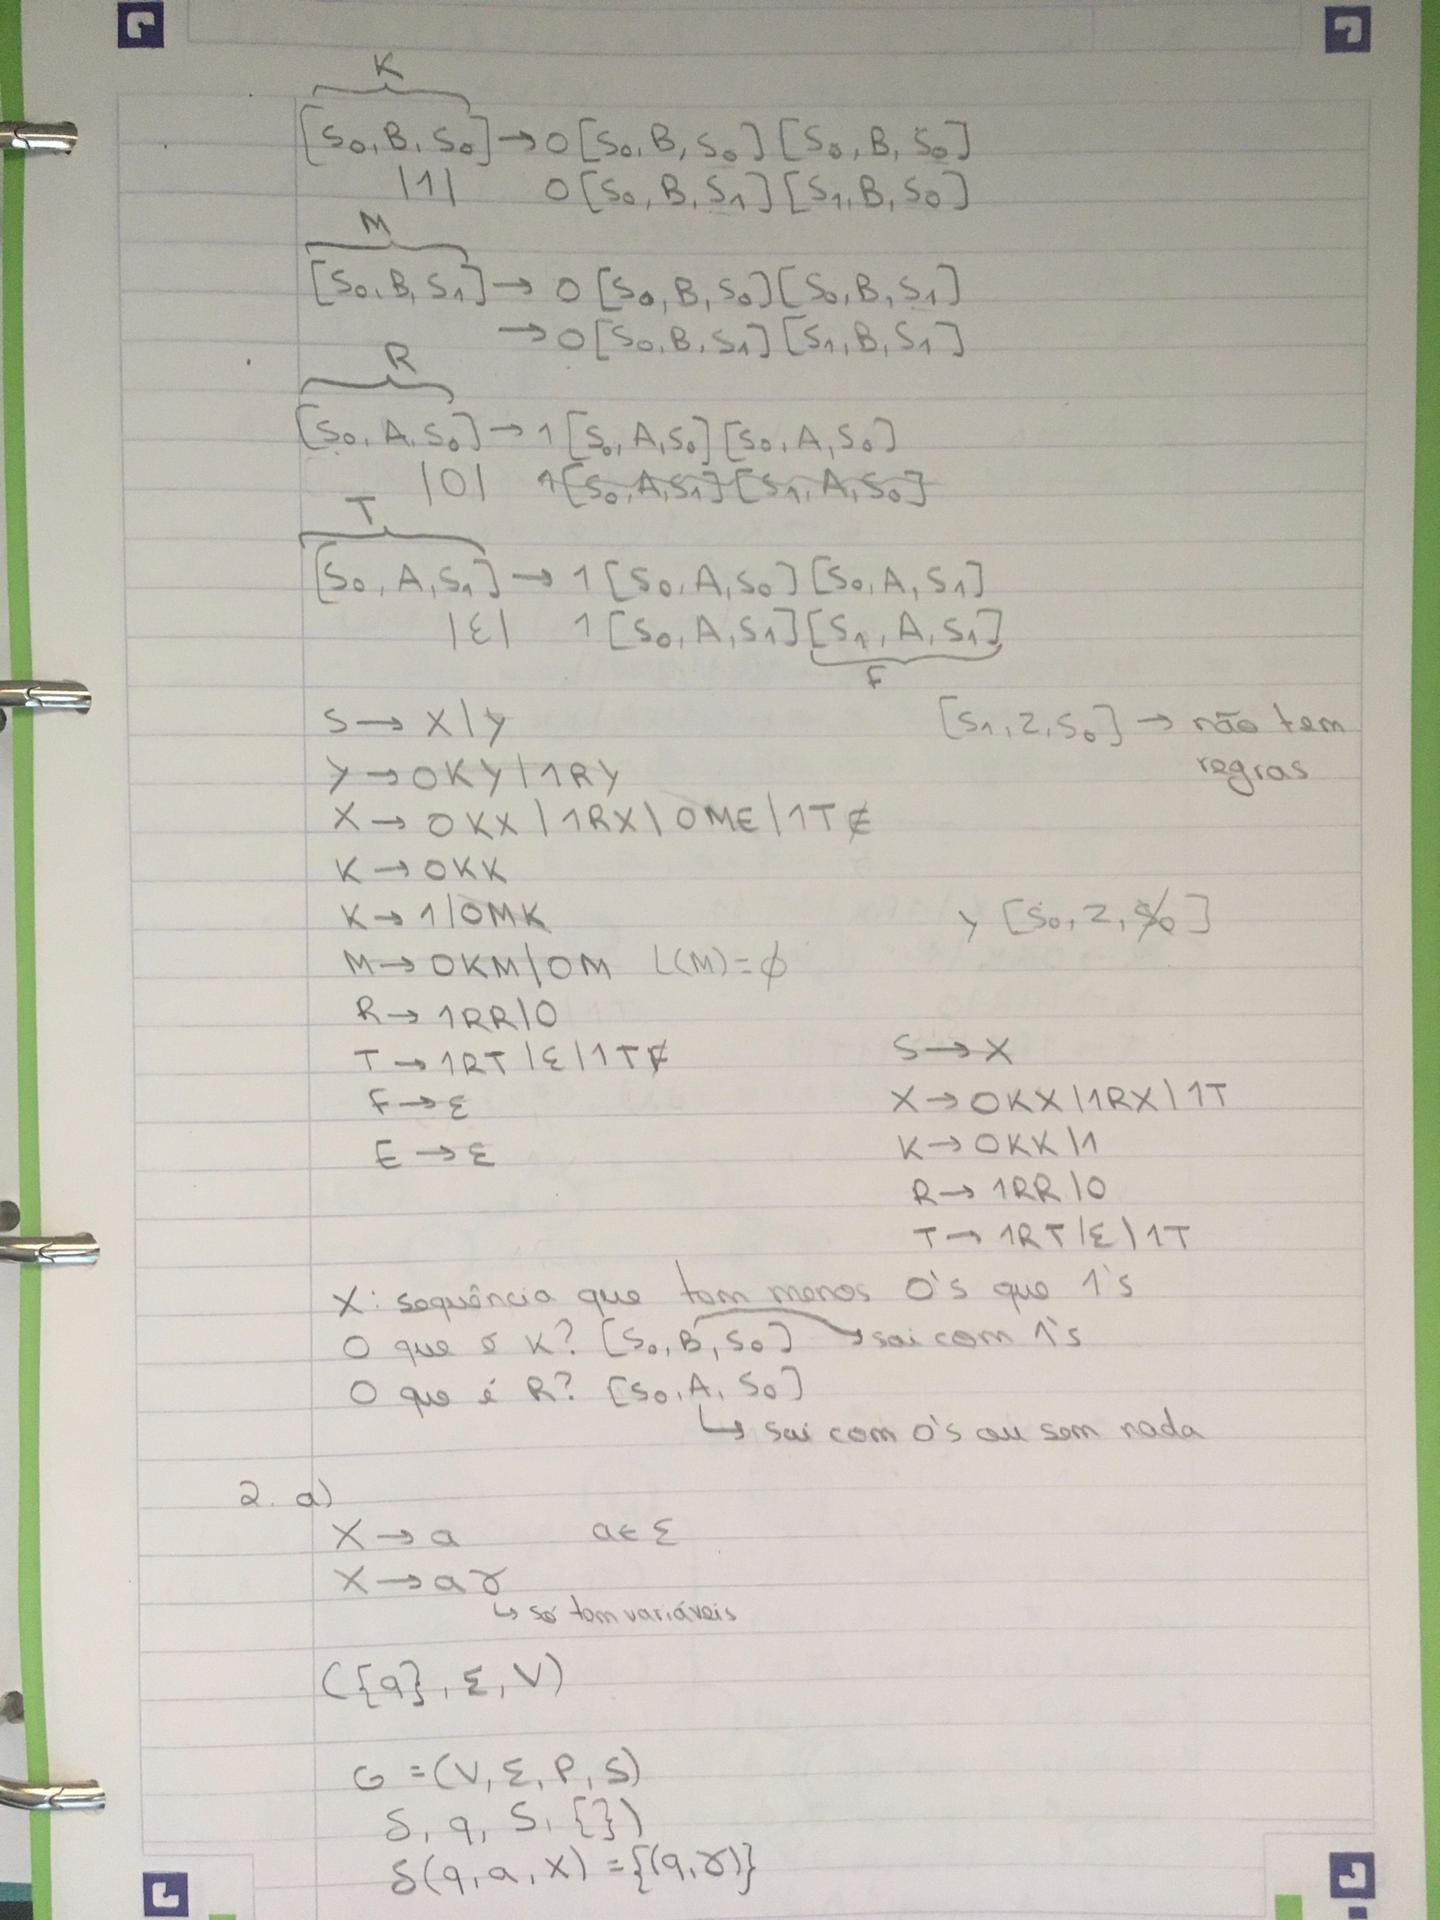 K
[S₀, B, S₀] → 0[S₀, B, S₀][S₀, B, S₀]
|1| 0[S₀, B, S₁][S₁, B, S₀]
M
[S₀, B, S₁] → 0[S₀, B, S₀][S₀, B, S₁]
→ 0[S₀, B, S₁][S₁, B, S₁]
R
[S₀, A, S₀] → 1[S₀, A, S₀][S₀, A, S₀]
|0| 1[S₀, A, S₁][S₁, A, S₀]
T
[S₀, A, S₁] → 1[S₀, A, S₀][S₀, A, S₁]
|ε| 1[S₀, A, S₁][S₁, A, S₁]
F
S → X | Y
[S₁, Z, S₀] → não tem
regras
Y → 0KY | 1RY
X → 0KX | 1RX | 0ME | 1TE
K → 0KK
K → 1 | 0MK
Y [S₀, Z, S₀]
M → 0KM | 0M L(M) = ∅
R → 1RR | 0
T → 1RT | ε | 1TF
F → ε
E → ε
S → X
X → 0KX | 1RX | 1T
K → 0KK | 1
R → 1RR | 0
T → 1RT | ε | 1T
X: sequência que tem menos 0's que 1's
O que é K? [S₀, B, S₀] → sai com 1's
O que é R? [S₀, A, S₀]
↳ sai com 0's ou sem nada
2. a)
X → a a ∈ Σ
X → aγ
↳ só tem variáveis
({q}, Σ, V)
G = (V, Σ, P, S)
δ, q, S, {})
δ(q, a, X) = {(q, γ)}